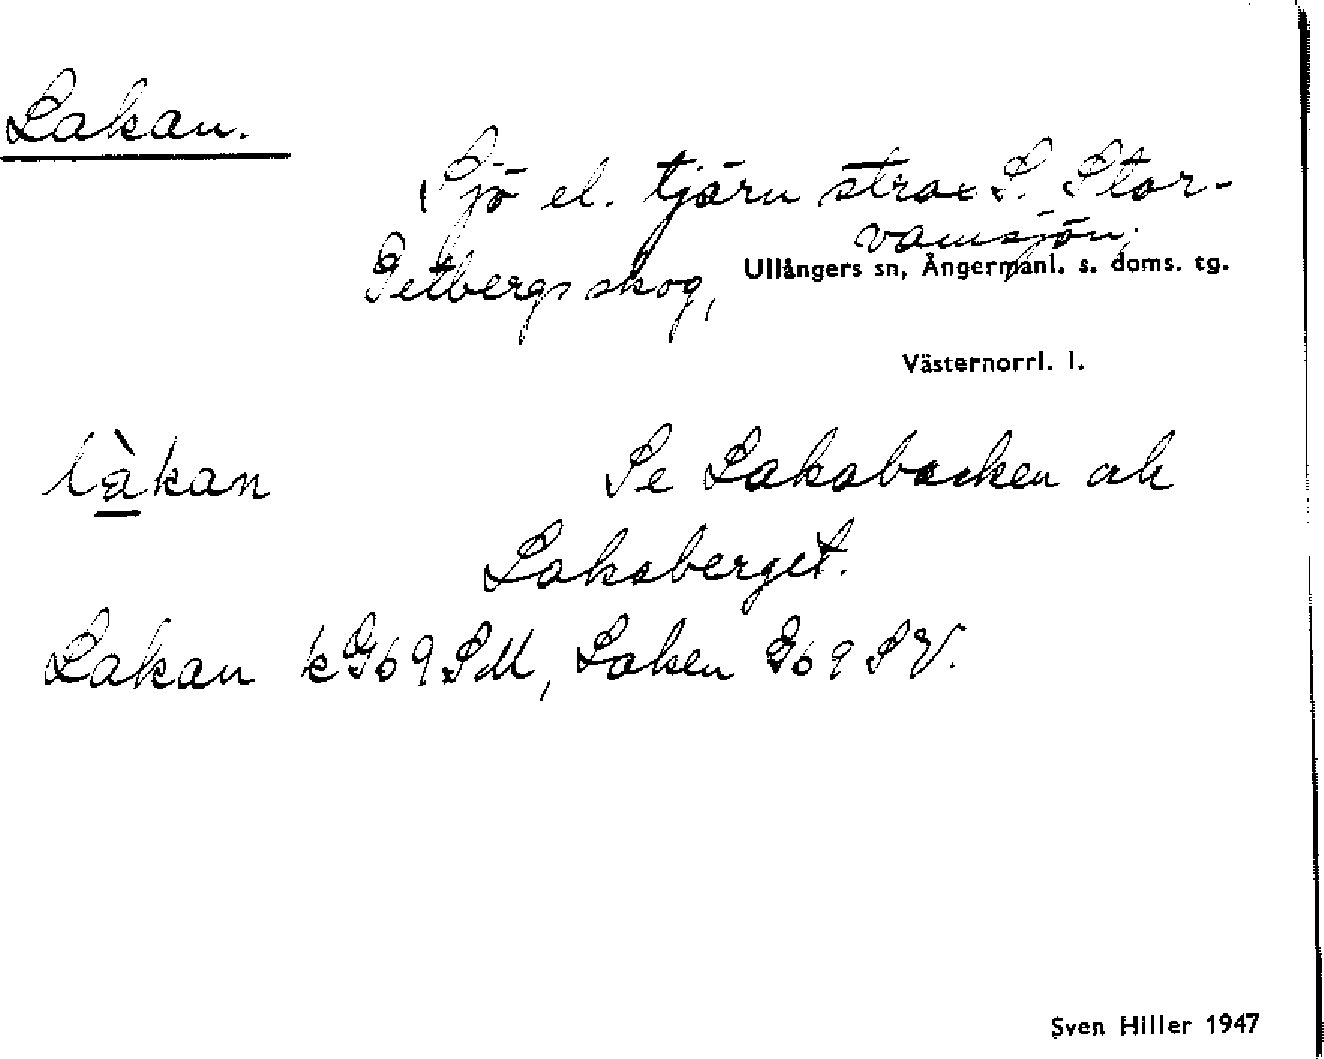 Lakan.
Sjö el. tjärn strax S. Stor-
vamsjön,
Getbergs skog, Ullångers sn, Ångermanl. s. doms. tg.
Västernorrl. l.
làkan Se Lakabacken och
Lakaberget.
Lakan k G69 SM, Laken G69 SV.
Sven Hiller 1947